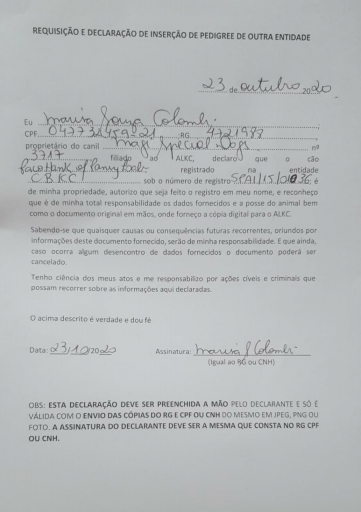 REQUISIÇÃO E DECLARAÇÃO DE INSERÇÃO DE PEDIGREE DE OUTRA ENTIDADE
23 de outubro 2020
Eu Marisa Souza Colombi
CPF 04773 RG 4721987
proprietário do canil Special Dogs nº
3717 filiado ao ALKC, declaro que o cão
registrado na entidade
CBKC sob o número de registro é
de minha propriedade, autorizo que seja feito o registro em meu nome, e reconheço
que é de minha total responsabilidade os dados fornecidos e a posse do animal bem
como o documento original em mãos, onde forneço a cópia digital para o ALKC.
Sabendo-se que quaisquer causas ou consequências futuras recorrentes, oriundos por
informações deste documento fornecido, serão de minha responsabilidade. E que ainda,
caso ocorra algum desencontro de dados fornecidos o documento poderá ser
cancelado.
Tenho ciência dos meus atos e me responsabilizo por ações cíveis e criminais que
possam recorrer sobre as informações aqui declaradas.
O acima descrito é verdade e dou fé
Data: 23/10/2020 Assinatura: Marisa S Colombi
(Igual ao RG ou CNH)
OBS: ESTA DECLARAÇÃO DEVE SER PREENCHIDA A MÃO PELO DECLARANTE E SÓ É
VÁLIDA COM O ENVIO DAS CÓPIAS DO RG E CPF OU CNH DO MESMO EM JPEG, PNG OU
FOTO. A ASSINATURA DO DECLARANTE DEVE SER A MESMA QUE CONSTA NO RG CPF
OU CNH.